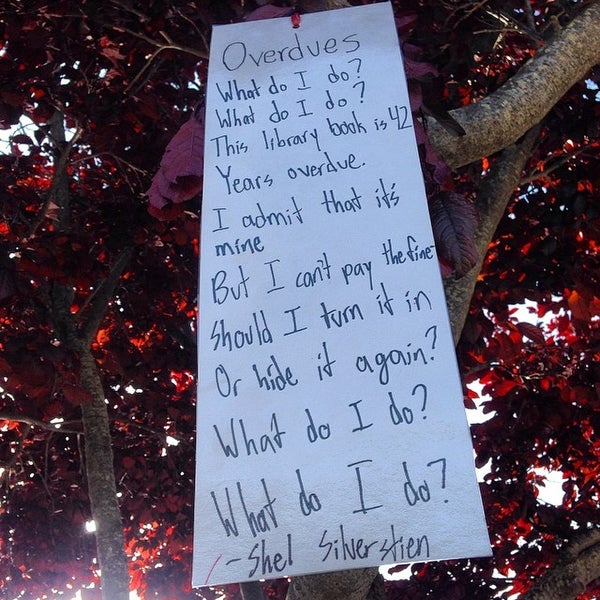 Overdues
What do I do?
What do I do?
This library book is 42
Years overdue.
I admit that it's
mine
But I can't pay the fine-
Should I turn it in
Or hide it again?
What do I do?
What do I do?
-Shel Silverstien